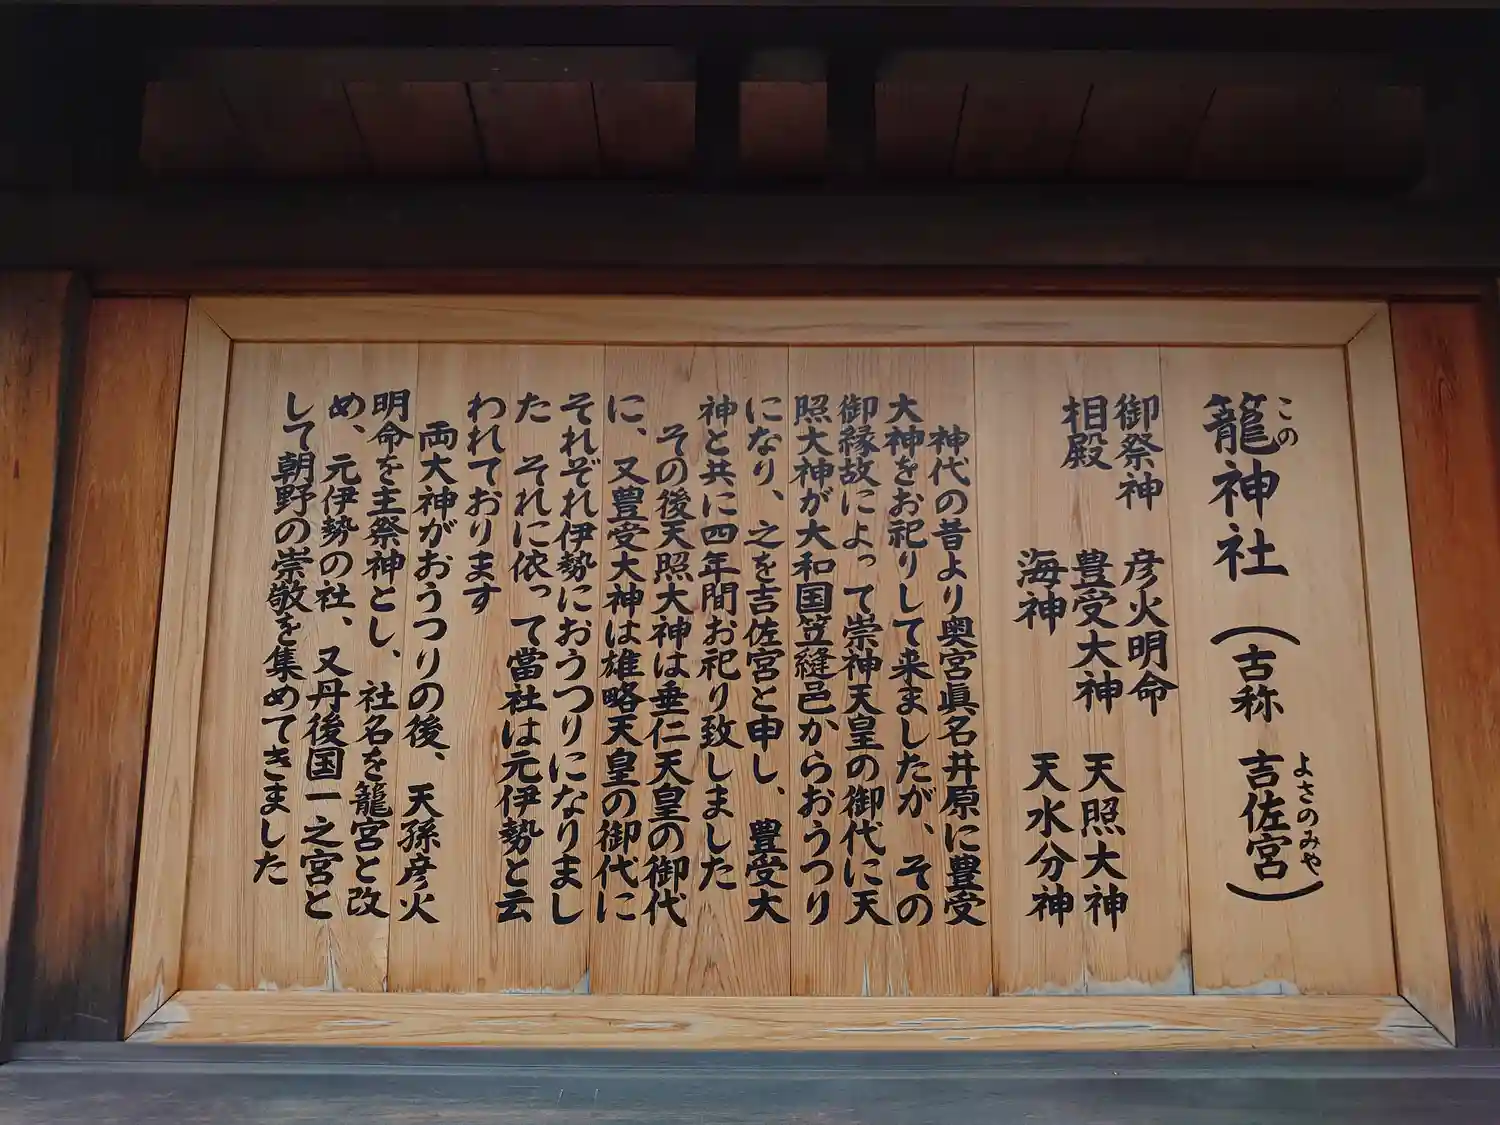 籠神社（古称 吉佐宮）
この
よさのみや
御祭神 彦火明命 天照大神
相殿 豊受大神
海神 天水分神
神代の昔より奥宮眞名井原に豊受
大神をお祀りして来ましたが、その
御縁故によって崇神天皇の御代に天
照大神が大和国笠縫邑からおうつり
になり、之を吉佐宮と申し、豊受大
神と共に四年間お祀り致しました
その後天照大神は垂仁天皇の御代
に、又豊受大神は雄略天皇の御代に
それぞれ伊勢におうつりになりまし
た それに依って當社は元伊勢と云
われております
両大神がおうつりの後、天孫彦火
明命を主祭神とし、社名を籠宮と改
め、元伊勢の社、又丹後国一之宮と
して朝野の崇敬を集めてきました